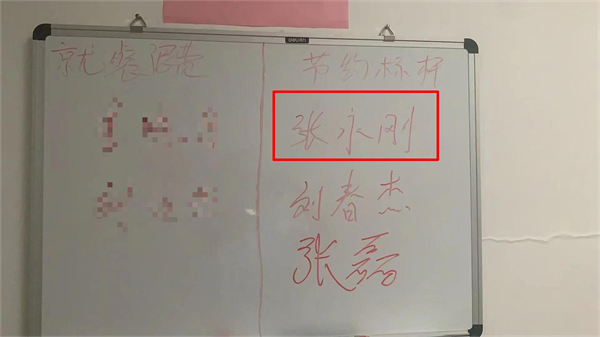 就餐浪费
节约标杆
张永刚
刘春杰
张磊